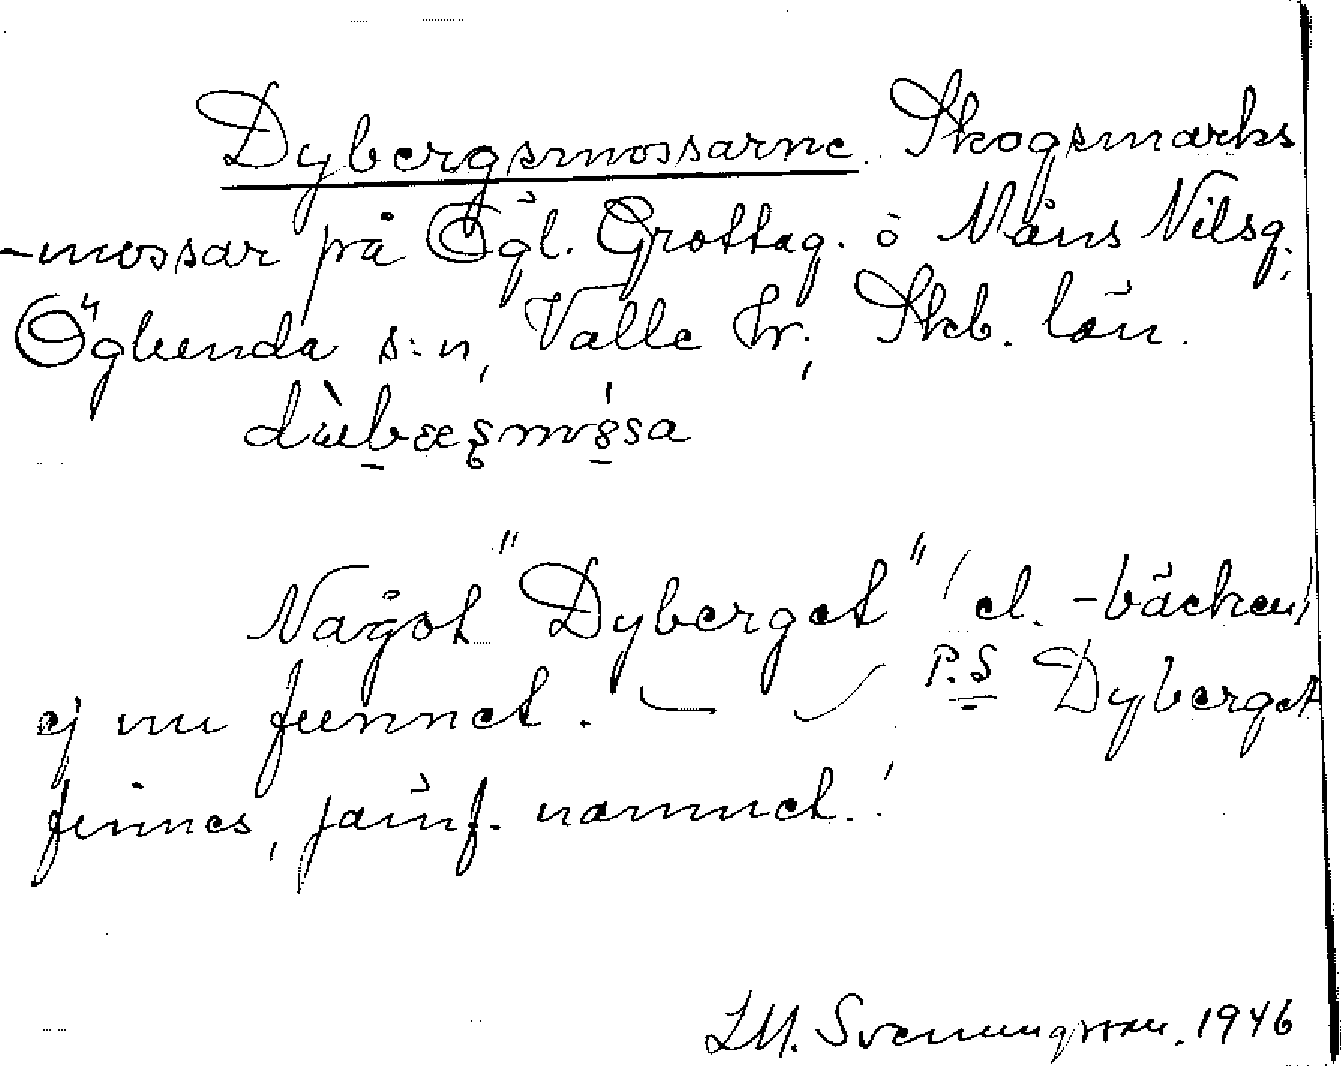 Dybergsmossarne. Skogsmarks
-mossar på Ögl. Grottag. o Måns Nilsg.,
Öglunda s:n, Valle hr., Skb. län.
Något "Dyberget" (el. -bäcken)
ej nu funnet. — P.S Dyberget
finnes, jämf. namnet.!
LM. Svenungsson. 1946